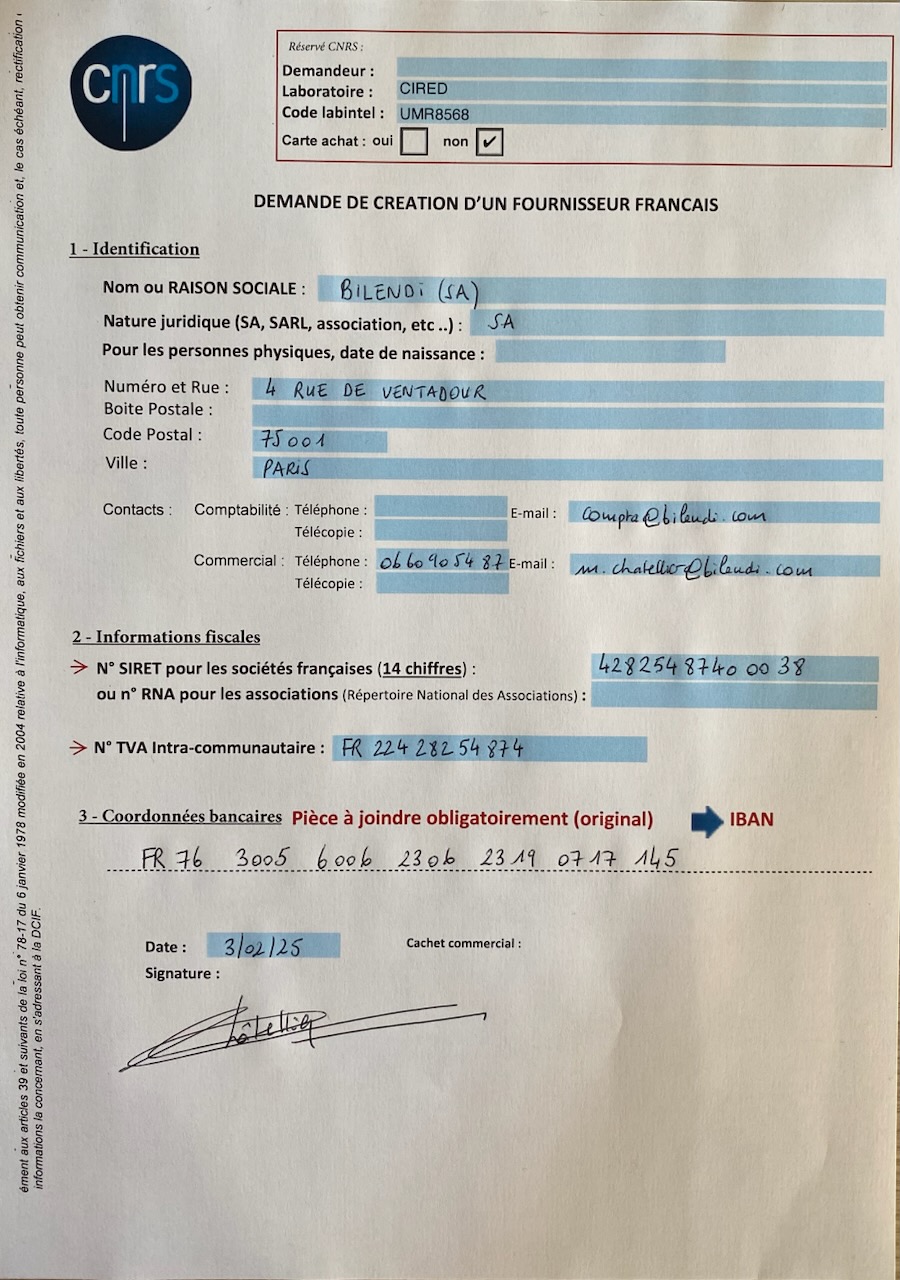 cnrs
Réservé CNRS :
Demandeur :
Laboratoire : CIRED
Code labintel : UMR8568
Carte achat : oui non ✔
DEMANDE DE CREATION D'UN FOURNISSEUR FRANCAIS
1 - Identification
Nom ou RAISON SOCIALE : BILENDI (SA)
Nature juridique (SA, SARL, association, etc ..) : SA
Pour les personnes physiques, date de naissance :
Numéro et Rue : 4 RUE DE VENTADOUR
Boite Postale :
Code Postal : 75001
Ville : PARIS
Contacts : Comptabilité : Téléphone : E-mail : compta@bilendi.com
Télécopie :
Commercial : Téléphone : 06 60 90 54 87 E-mail : m.chatellier@bilendi.com
Télécopie :
2 - Informations fiscales
→ N° SIRET pour les sociétés françaises (14 chiffres) : 428254 8740 00 38
ou n° RNA pour les associations (Répertoire National des Associations) :
→ N° TVA Intra-communautaire : FR 224 282 54 874
3 - Coordonnées bancaires Pièce à joindre obligatoirement (original) IBAN
FR 76 3005 6006 2306 2319 0717 145
Date : 3/02/25 Cachet commercial :
Signature :
Châtellier
ément aux articles 39 et suivants de la loi n° 78-17 du 6 janvier 1978 modifiée en 2004 relative à l'informatique, aux fichiers et aux libertés, toute personne peut obtenir communication et, le cas échéant, rectification
informations la concernant, en s'adressant à la DCIF.